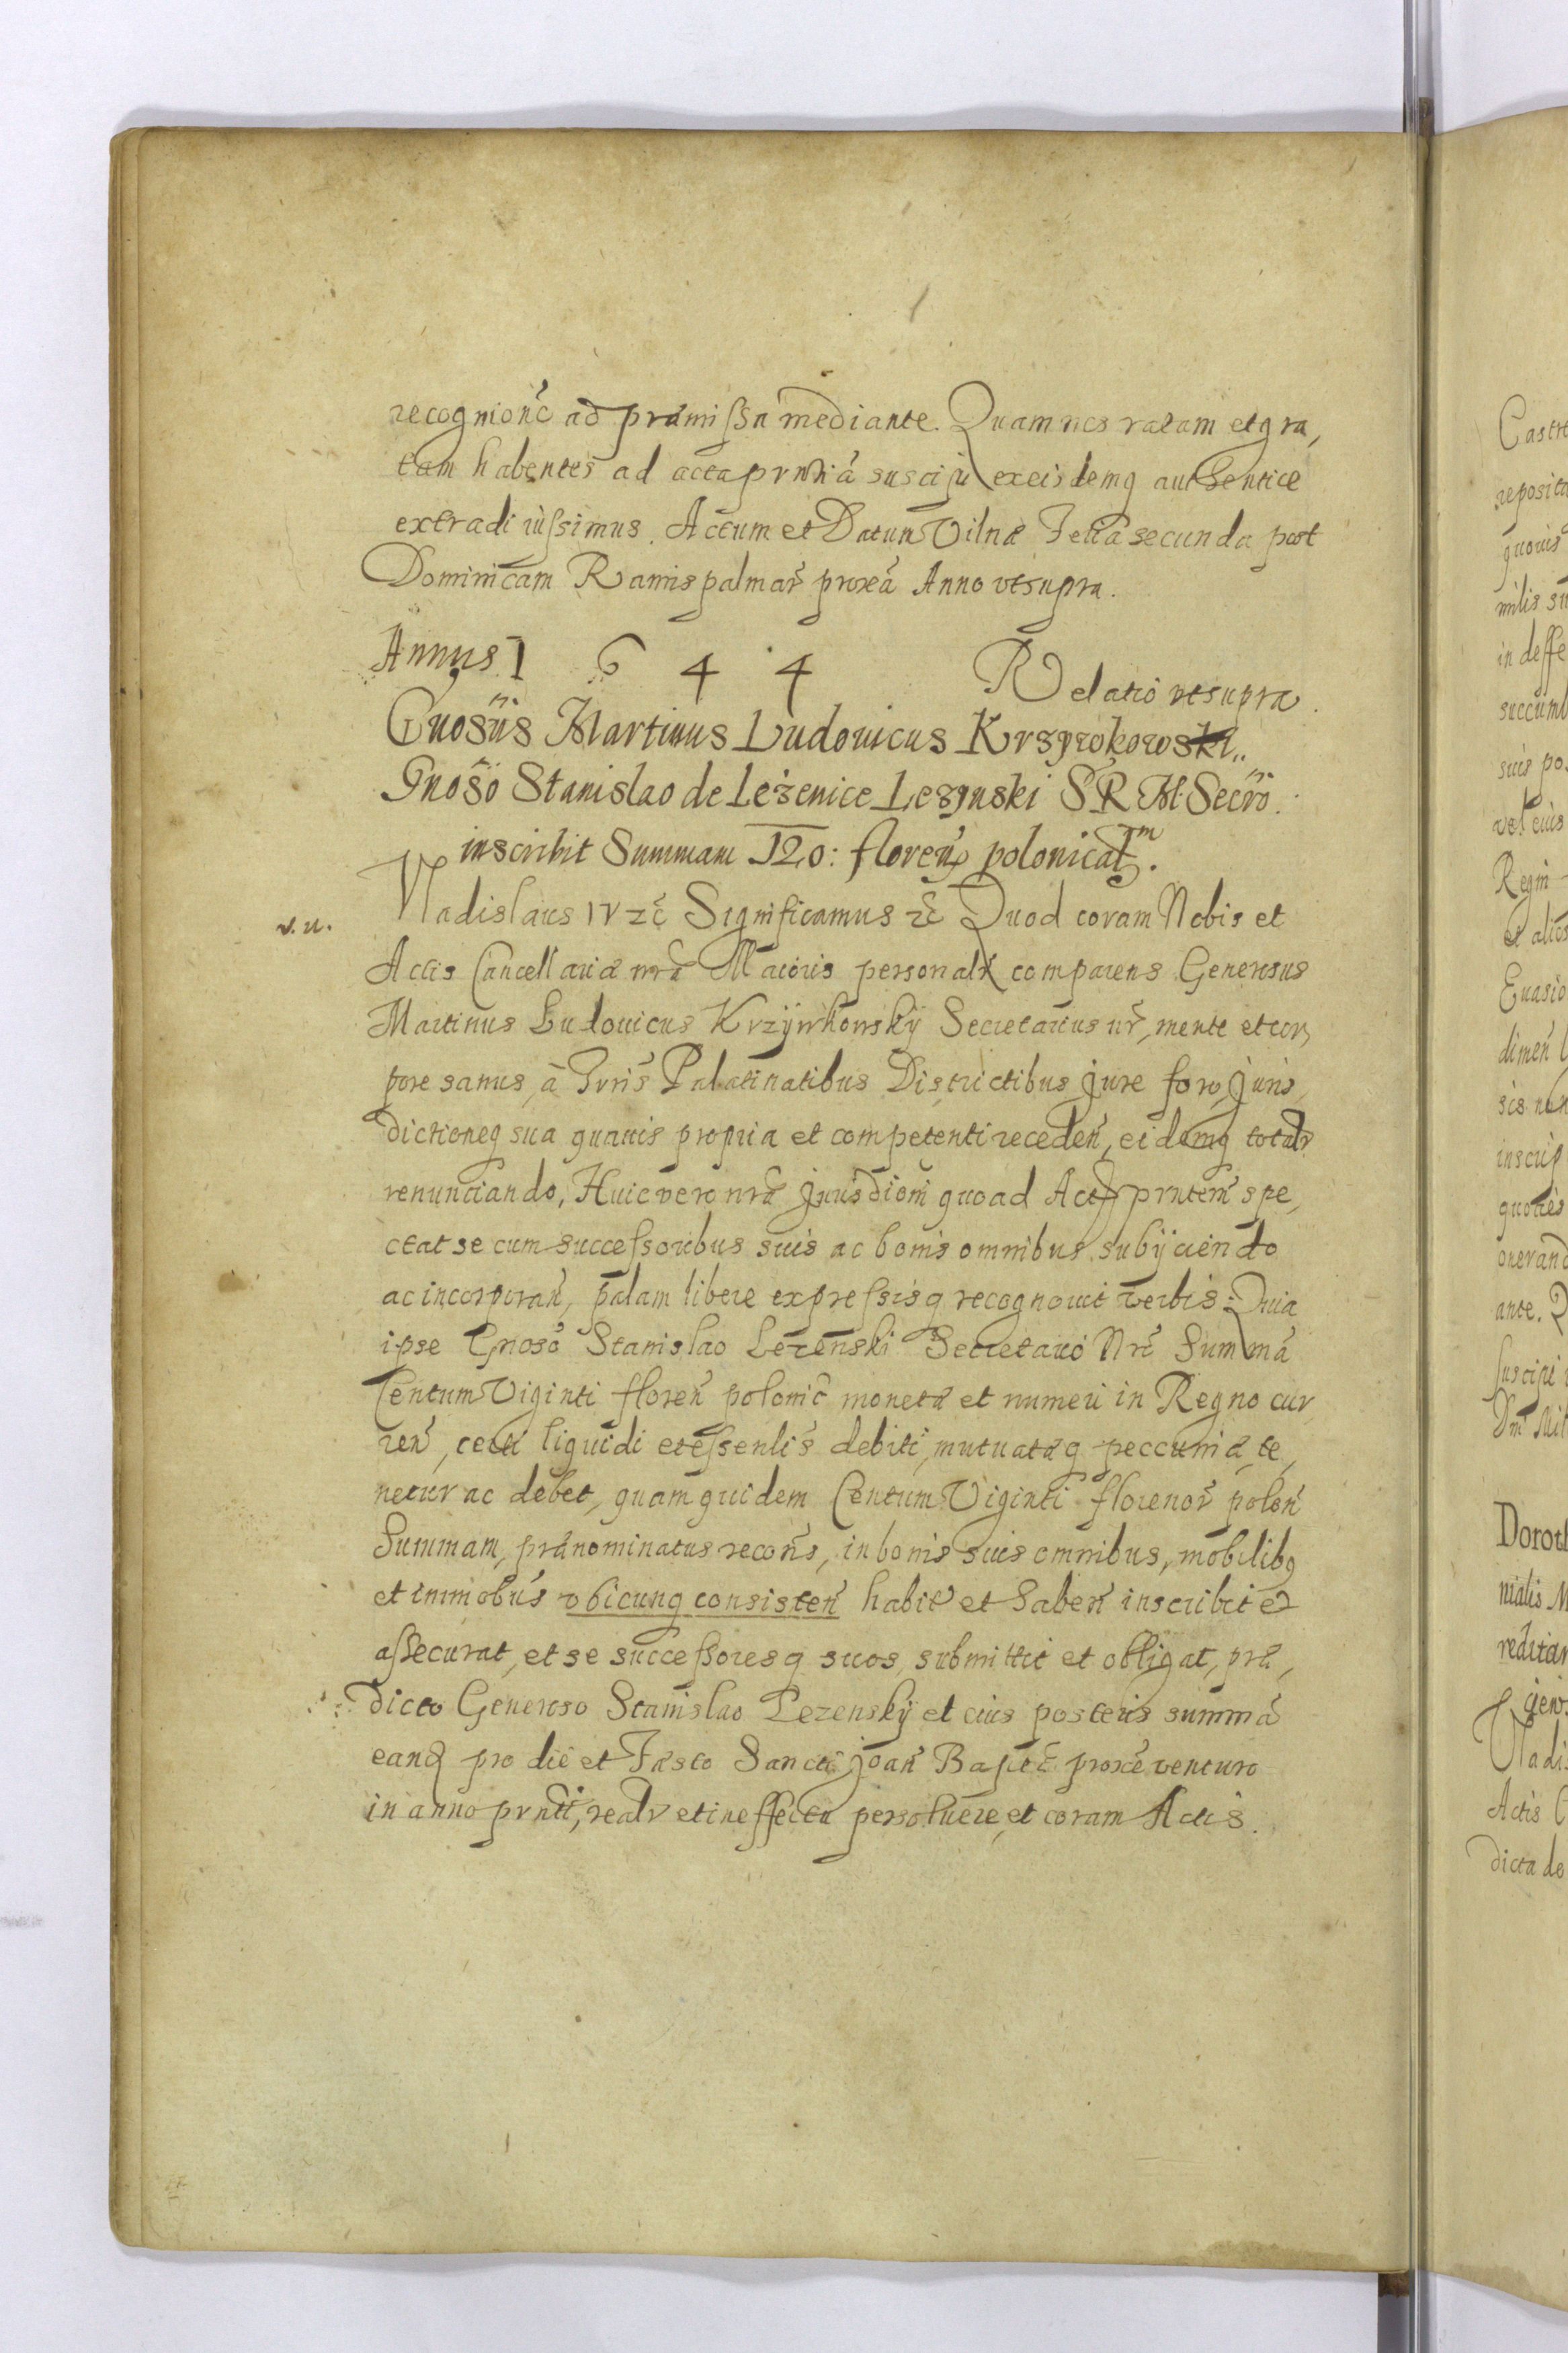 recognionẽ ad præmissa mediante. Quam nos ratam et gra,
tam habentes ad acta prñtia suscipi exeisdemq authentice
extradi iussimus. Actum et Datum Vilnæ Feria secunda post
Dominicam Ramis palmar̃ proxã Anno vtsupra.
Annus 1 6 4 4 Relatio vtsupra.
Gnosus Martinus Ludouicus Krzywkowski
Gnoso Stanislao de Leżenice Lezynski S R M Secrio.
inscribit Summam 120: floren polonicalm.
v. u.
Vladislaus IV zc̃ Significamus zc̃ Quod coram Nobis et
Actis Cancellariæ nrã Maioris personalr comparens Generosus
Martinus Ludouicus Krzÿwkowskÿ Secretarius nr̃, mente et cor,
pore sanus, à Tvris Palatinatibus Districtibus Jure foro, Juris,
dictioneq sua quauis propria et competenti receden̄, eidemq totalr
renunciando, Huic vero nrã Jurisdioni quoad Actũ prñtem spe,
ctat se cum successoribus suis ac bonis omnibus subÿciendo
ac incorporañ, palam libere expressisq recognouit verbis: Quia
ipse Gnosõ Stanislao Lezenski Secretario Nrõ Summã
Centum Viginti floreñ polonic̃ monetæ et numeri in Regno cur,
reñ, certi liquidi et essenlis debiti, mutuatæq peccuniæ, te,
netur ac debet, quam quidem Centum Viginti florenor̃ poloñ
Summam, prænominatus recoñs, in bonis suis omnibus, mobilibq
et immobus vbicunq consisteñ habit̃ et habeñ inscribit et
assecurat, et se successoresq suos, submittit et obligat, præ,
dicto Generoso Stanislao Lezenskÿ et eius posteris summã
eanq pro die et Fæsto Sancti Joañ Bapte proxe venturo
in anno prñti, realr et in effectu persoluere, et coram Actis.